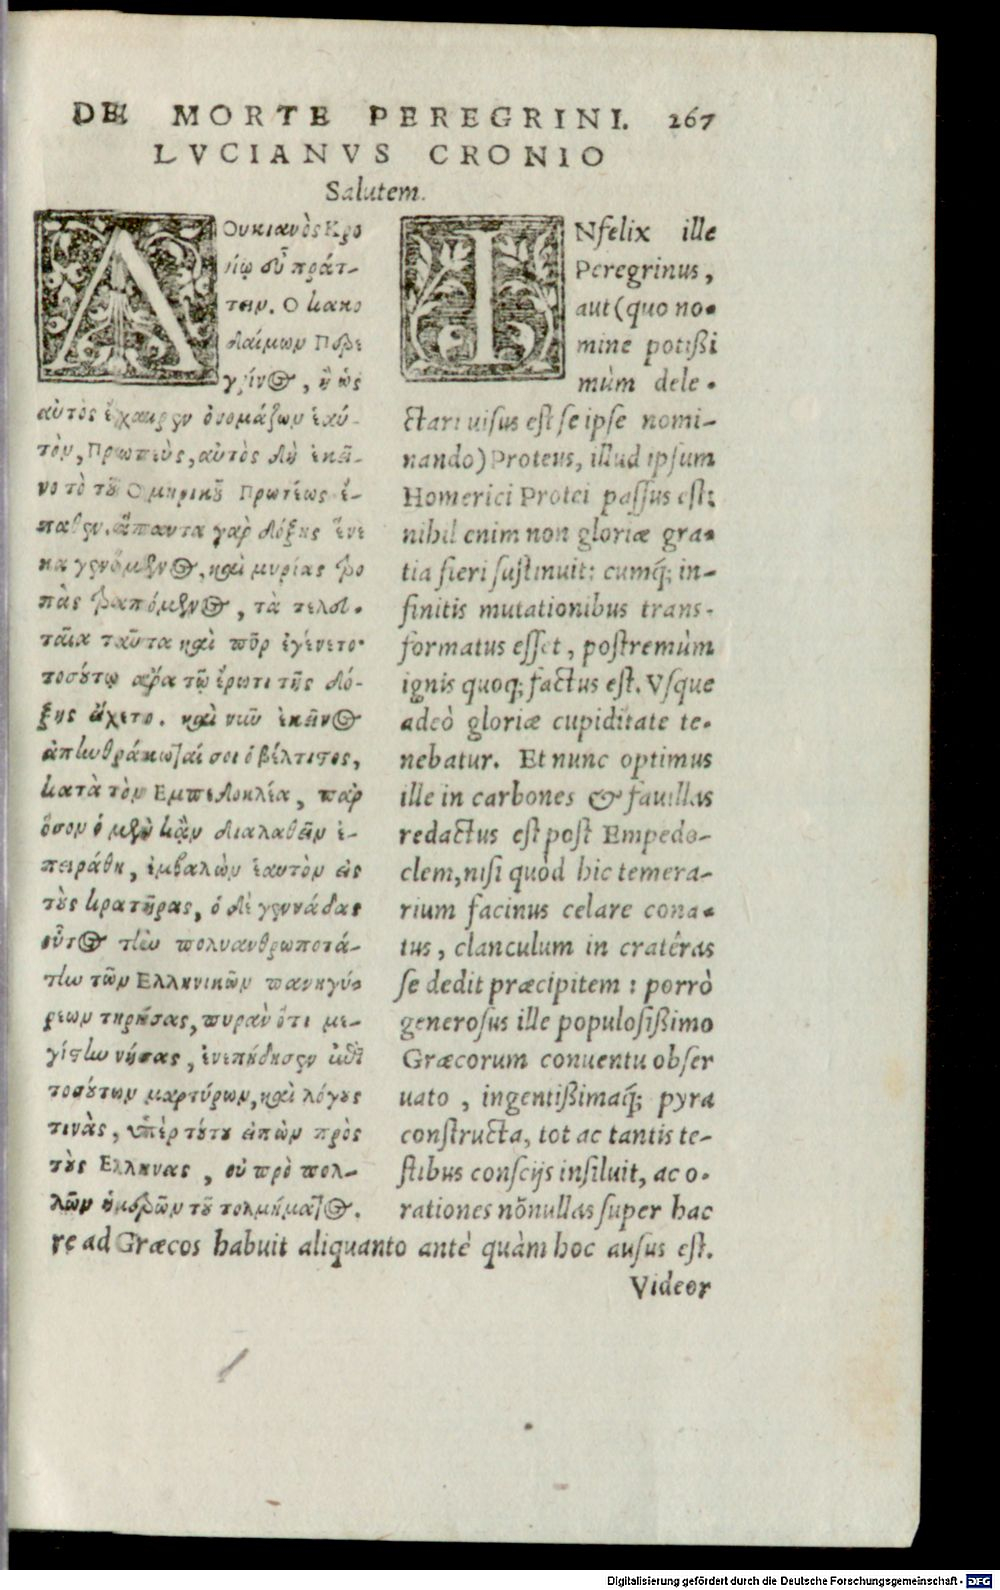 DE MORTE PEREGRINI. 267
LVCIANVS CRONIO
Salutem.
ΛΟυκιανὸς Κρο
νίῳ εὖ πράτ-
τειν. Ο κακο
δαίμων Περε
γρῖνος, ἢ ὡς
αὐτὸς ἔχαιρεν ὀνομάζων ἑαυ-
τὸν, Πρωτεὺς, αὐτὸς δὴ ἐκεῖ-
νο τὸ τοῦ Ομηρικοῦ Πρωτέως ἔ-
παθεν. ἅπαντα γὰρ δόξης ἕνε
κα γενόμενος, καὶ μυρίας τρο
πὰς τραπόμενος, τὰ τελευ-
ταῖα ταῦτα καὶ πῦρ ἐγένετο·
τοσούτῳ ἄρα τῷ ἔρωτι τῆς δό-
ξης εἴχετο. καὶ νῦν ἐκεῖνος
ἀπηνθράκωταί σοι ὁ βέλτιστος,
κατὰ τὸν Εμπεδοκλέα, παρ
ὅσον ὁ μὲν κἂν διαλαθεῖν ἐ-
πειράθη, ἐμβαλὼν ἑαυτὸν εἰς
τοὺς κρατῆρας, ὁ δὲ γεννάδας
οὗτος τὴν πολυανθρωποτά-
την τῶν Ελληνικῶν πανηγύ-
ρεων τηρήσας, πυρὰν ὅτι με-
γίστην νήσας, ἐνεπήδησεν ἐπὶ
τοσούτων μαρτύρων, καὶ λόγους
τινὰς, ὑπὲρ τούτου εἰπὼν πρὸς
τοὺς Ελληνας, οὐ πρὸ πολ-
λῶν ἡμερῶν τοῦ τολμήματος.
INfelix ille
Peregrinus,
aut (quo no-
mine potißi
mùm dele-
ctari uisus est se ipse nomi-
nando) Proteus, illud ipsum
Homerici Protei passus est:
nihil enim non gloriæ gra-
tia fieri sustinuit: cumq́; in-
finitis mutationibus trans-
formatus esset, postremùm
ignis quoq; factus est. Vsque
adeò gloriæ cupiditate te-
nebatur. Et nunc optimus
ille in carbones & fauillas
redactus est post Empedo-
clem, nisi quòd hic temera-
rium facinus celare cona-
tus, clanculum in craterâs
se dedit præcipitem: porrò
generosus ille populosißimo
Græcorum conuentu obser
uato, ingentißimaq́; pyra
constructa, tot ac tantis te-
stibus conscijs insiluit, ac o-
rationes nõnullas super hac
re ad Græcos habuit aliquanto antè quàm hoc ausus est.
Videor
Digitalisierung gefördert durch die Deutsche Forschungsgemeinschaft - DFG